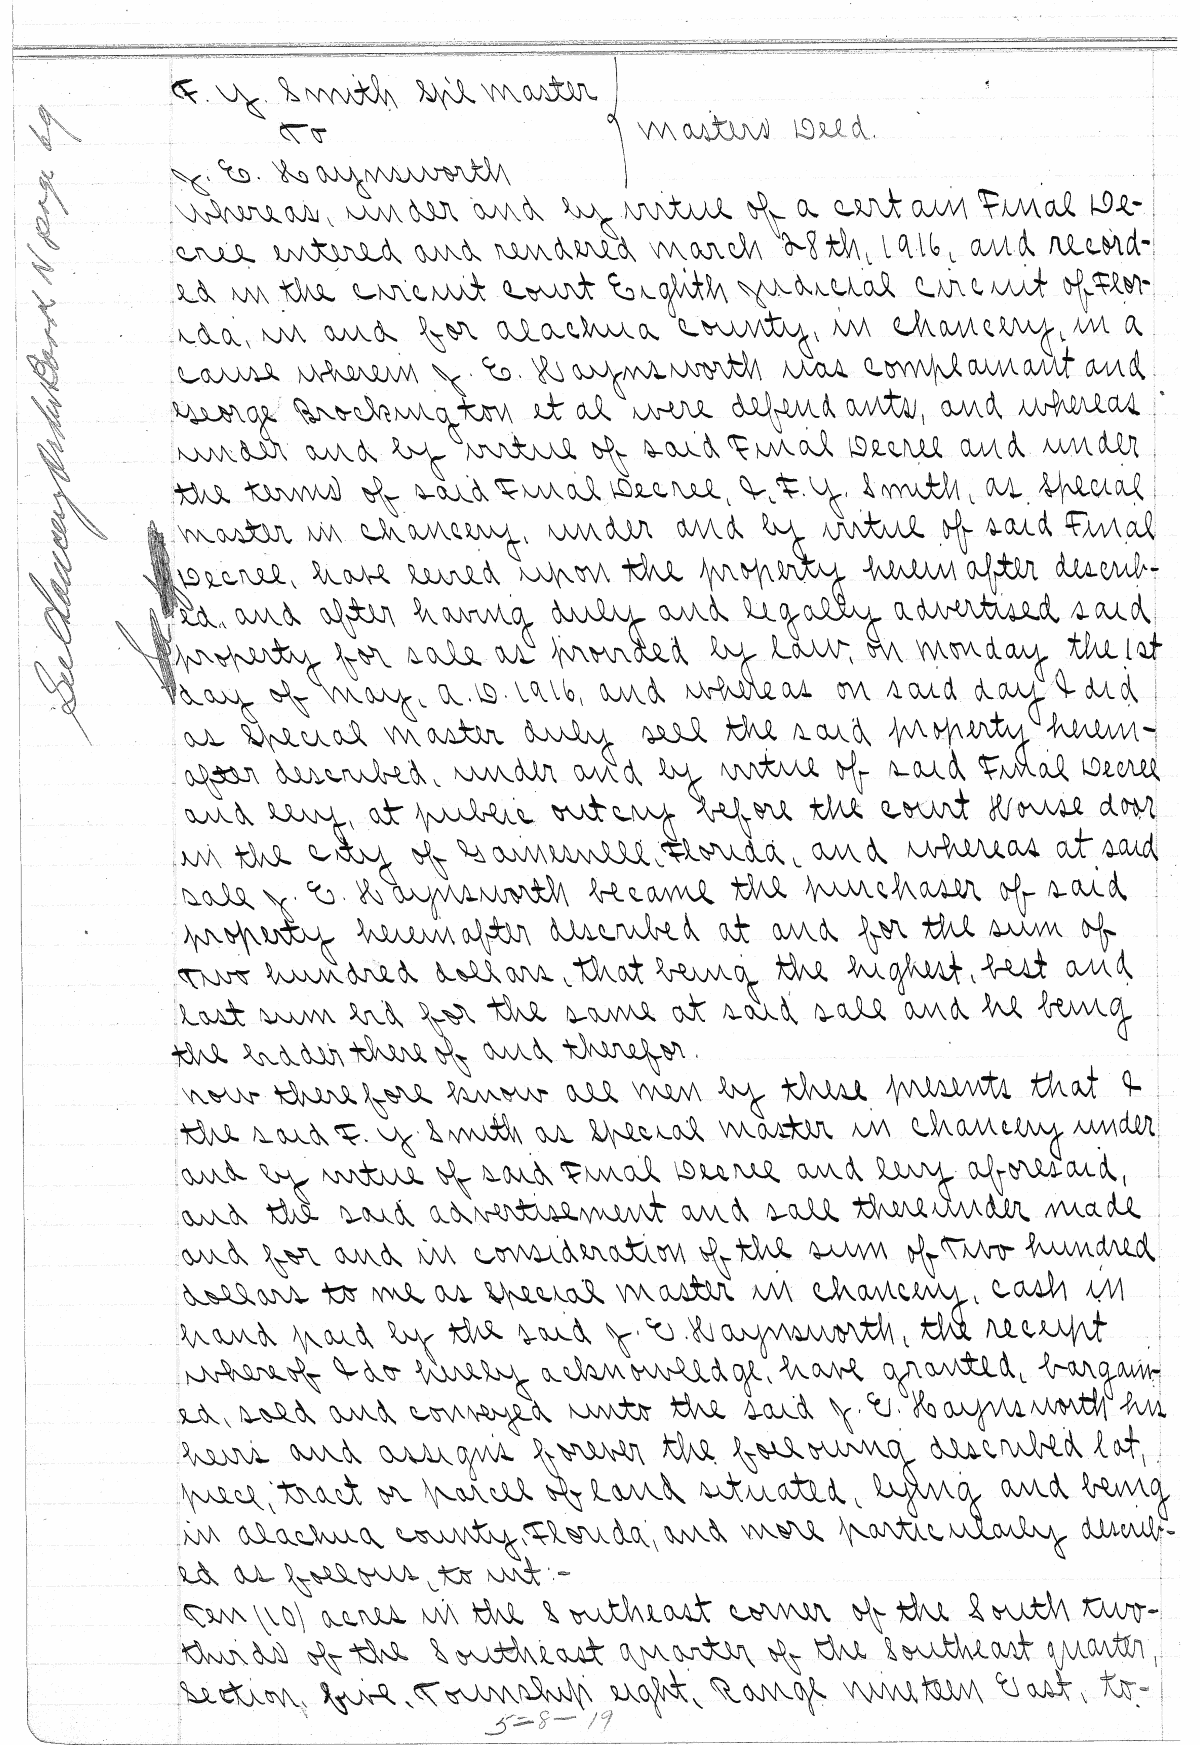 F. Y. Smith Spil Master
To
Masters Deed.
J. E. Haynsworth
Whereas, under and by virtue of a certain Final De-
cree entered and rendered March 28th, 1916, and record-
ed in the circuit court Eighth Judicial circuit of Flor-
ida, in and for Alachua County, in chancery, in a
cause wherein J. E. Haynsworth was complainant and
George Brockington et al were defendants, and whereas
under and by virtue of said Final Decree and under
the terms of said Final Decree, I, F. Y. Smith, as Special
Master in chancery, under and by virtue of said Final
Decree, have levied upon the property herein after describ-
ed, and after having duly and legally advertised said
property for sale as provided by law, on Monday the 1st
day of May, A.D. 1916, and whereas on said day I did
as Special Master duly sell the said property herein-
after described, under and by virtue of said Final Decree
and levy, at public outcry before the court House door
in the city of Gainesville, Florida, and whereas at said
sale J. E. Haynsworth became the purchaser of said
property hereinafter described at and for the sum of
Two hundred dollars, that being the highest, best and
last sum bid for the same at said sale and he being
the bidder there of and therefor.
Now therefore know all men by these presents that I
the said F. Y. Smith as Special Master in chancery under
and by virtue of said Final Decree and levy aforesaid,
and the said advertisement and sale thereunder made
and for and in consideration of the sum of Two hundred
dollars to me as Special Master in chancery, cash in
hand paid by the said J. E. Haynsworth, the receipt
whereof I do hereby acknowledge, have granted, bargain-
ed, sold and conveyed unto the said J. E. Haynsworth his
heirs and assigns forever the following described lot,
piece, tract or parcel of land situated, lying and being
in Alachua County, Florida, and more particularly describ-
ed as follows, to wit:-
Ten (10) acres in the Southeast corner of the South two-
thirds of the Southeast quarter of the Southeast quarter,
Section, five, Township eight, Range nineteen East, to-
5-8-19
See Chancery Order Book N page 69